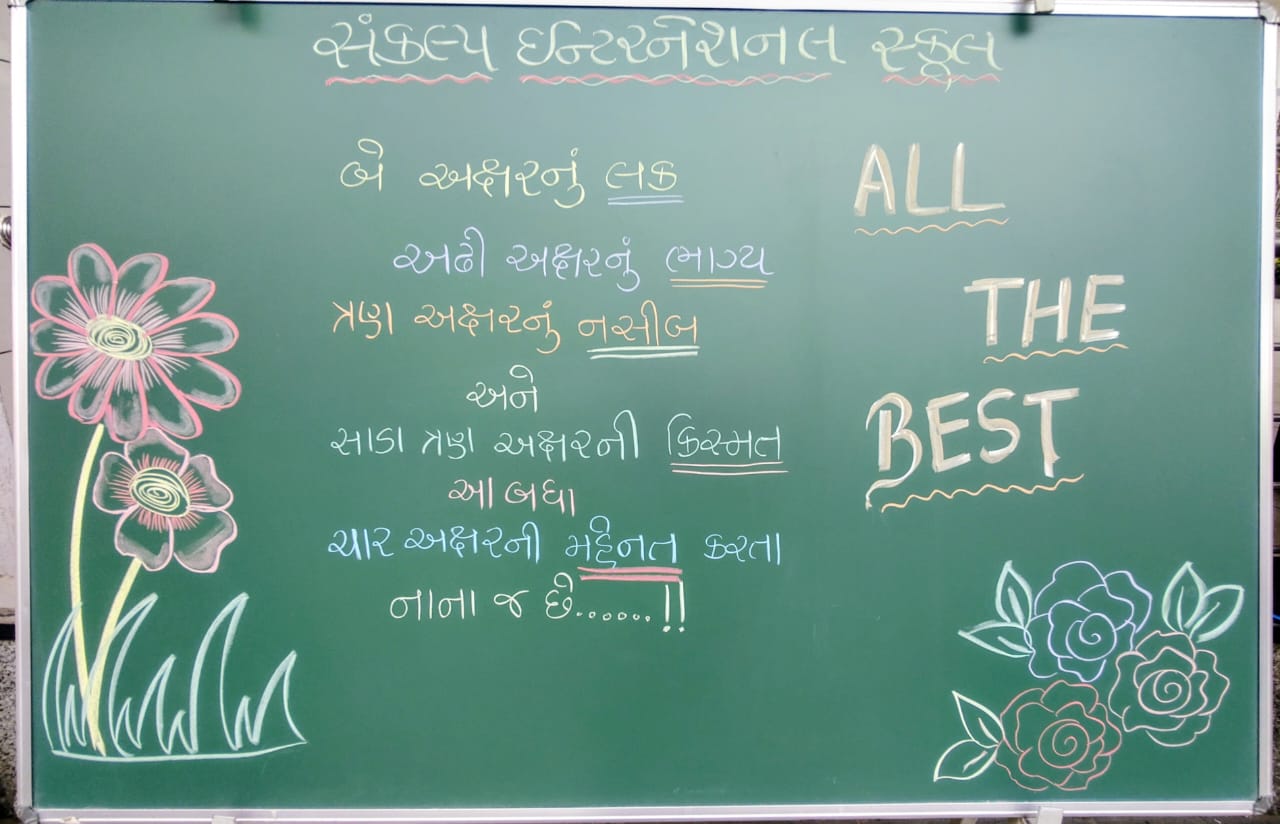 સંકલ્પ ઇન્ટિરનેશનલ સ્કૂલ
બે અક્ષરનું લક
અઢી અક્ષરનું ભાગ્ય
ત્રણ અક્ષરનું નસીબ
અને
સાડા ત્રણ અક્ષરની કિસ્મત
આ બધા
ચાર અક્ષરની મહેનત કરતા
નાના જ છે......!!
ALL
THE
BEST